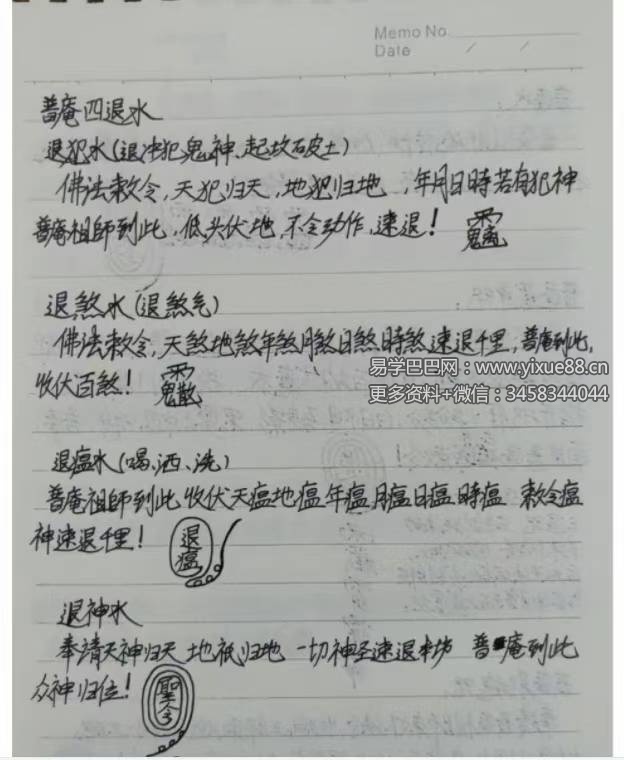 Memo No.
Date / /
普庵四退水
退犯水(退冲犯鬼神、起坎破土)
佛法敕令,天犯归天,地犯归地,年月日時若有犯神
普庵祖師到此,低头伏地,不令动作,速退!
退煞水(退煞気)
佛法敕令,天煞地煞年煞月煞日煞時煞速退千里,普庵到此,
收伏百煞!
易学巴巴网:www.yixue88.cn
更多资料+微信:3458344044
退瘟水(喝、洒、洗)
普庵祖師到此收伏天瘟地瘟年瘟月瘟日瘟時瘟 敕令瘟
神速退千里!
退瘟
退神水
奉請天神归天 地祇归地 一切神圣速退 普庵到此
众神归位!
聖令